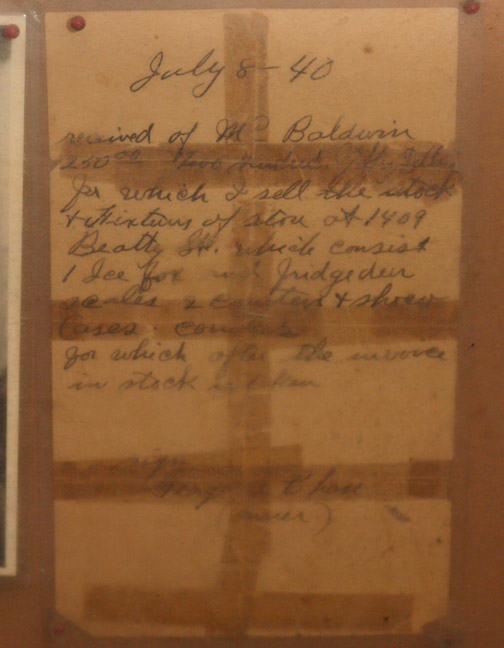 July 8 - 40
received of Mc Baldwin
250.00 Two Hundred Fifty Dollars
for which I sell the stock
& fixtures of store at 1409
Beatty St. which consist
1 Ice box and
scales 2 counters & show
Cases.
for which after the invoice
in stock is taken
(owner)